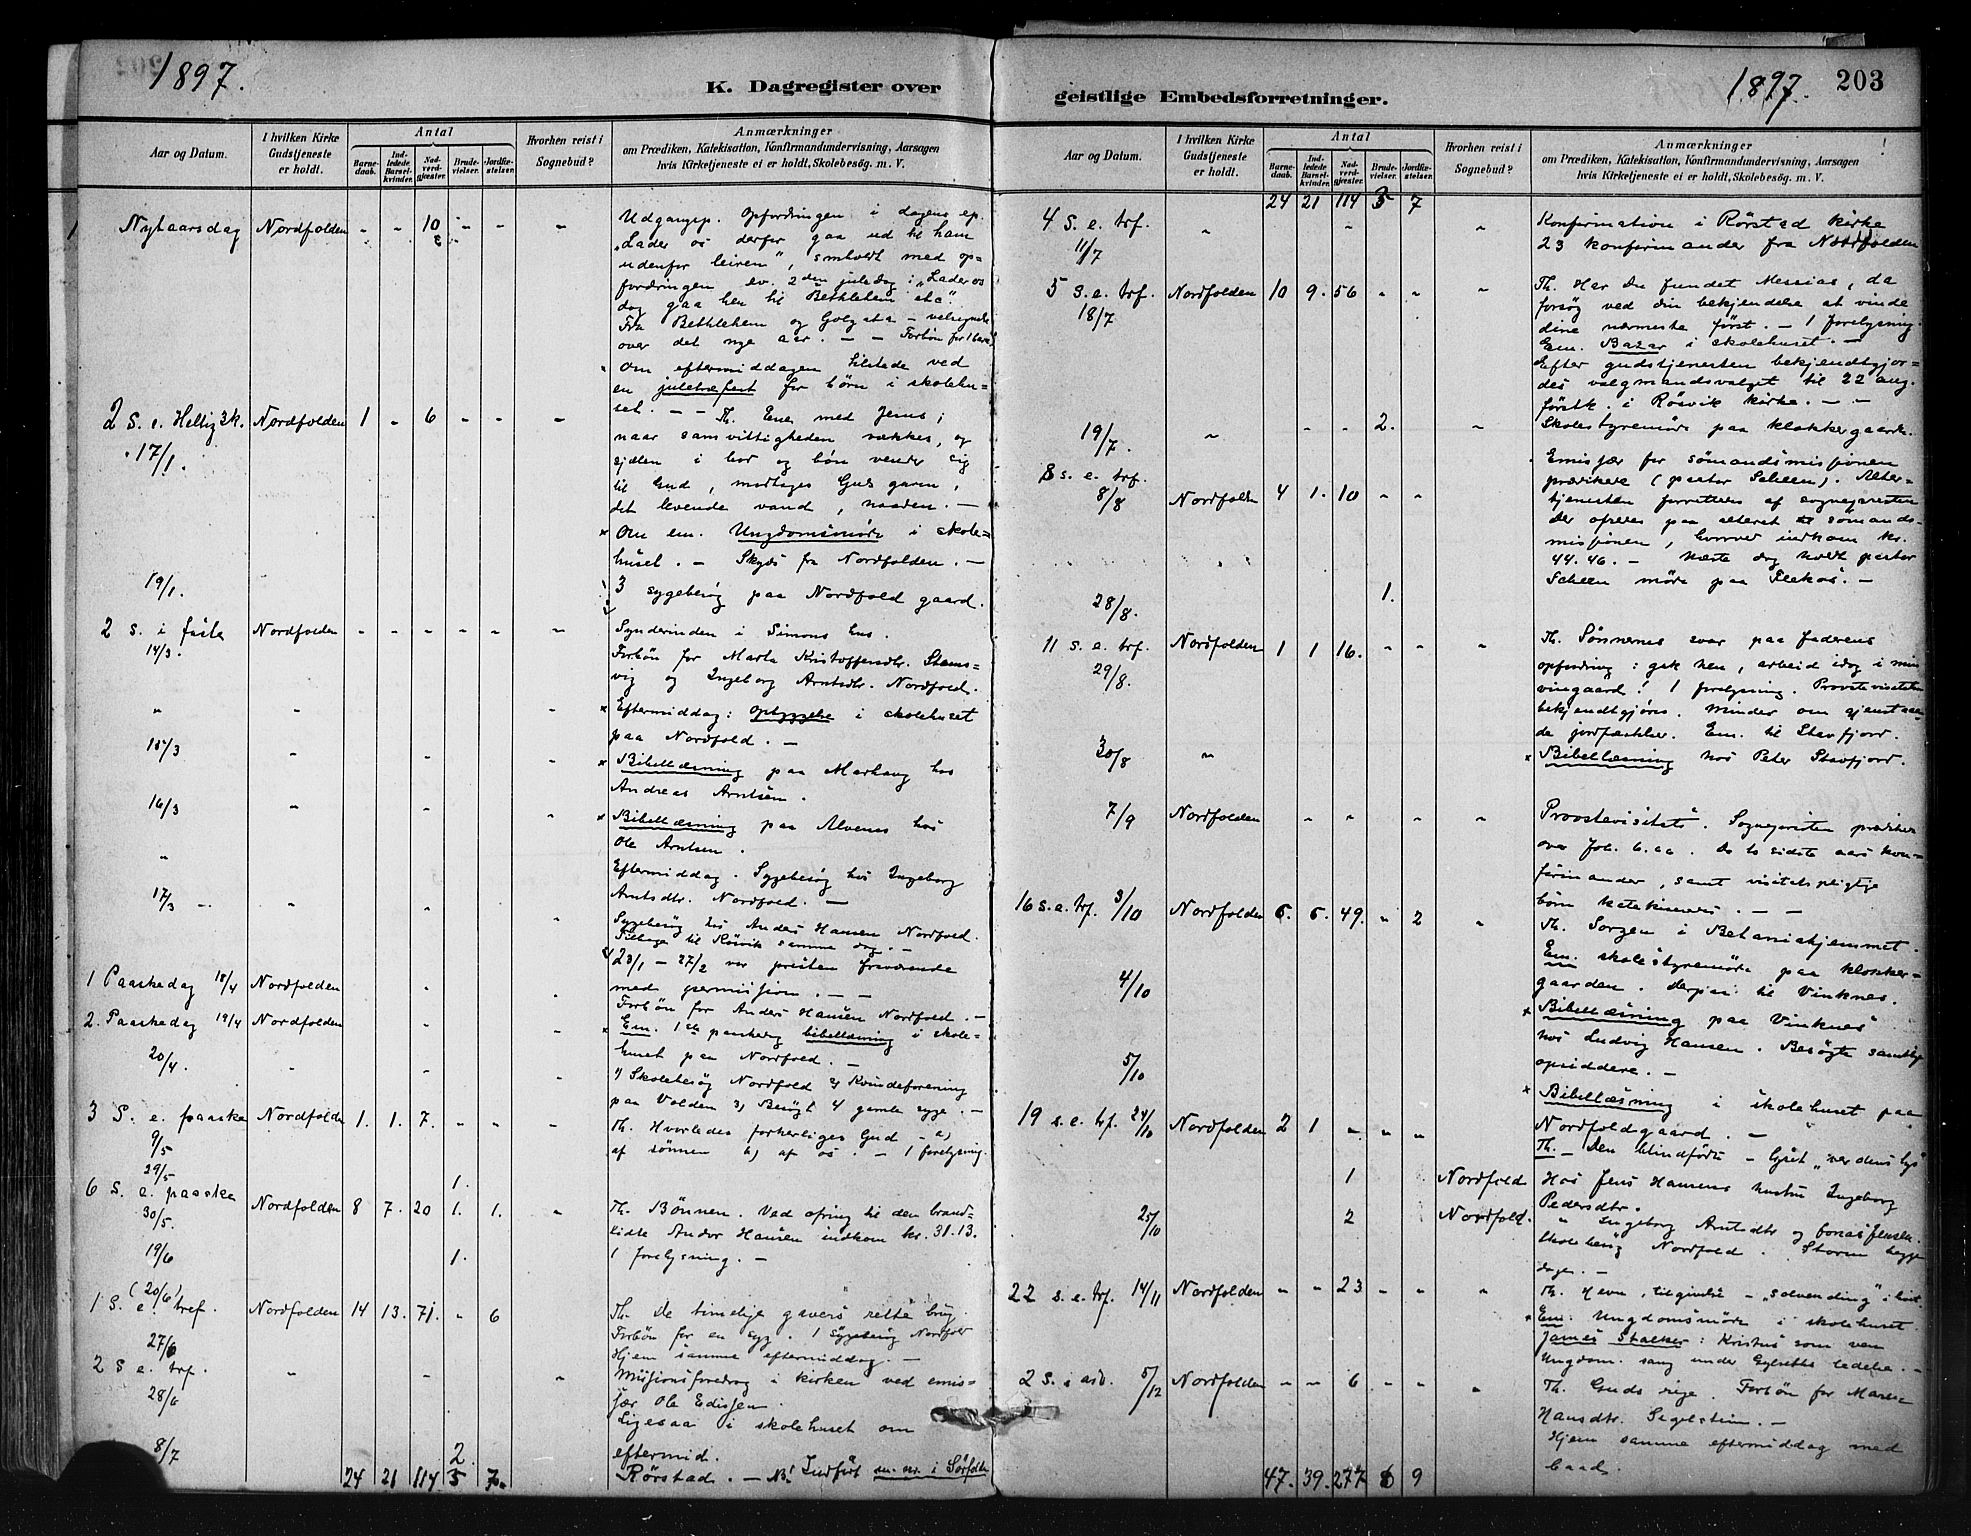 1897.
K. Dagregister over
Aar og Datum.
I hvilken Kirke Gudstjeneste er holdt.
Antal
Barnedaab.
Indledede Barselkvinder.
Nadverdgjæster.
Brudevielser.
Jordfæstelser.
Hvorhen reist i Sognebud?
Anmærkninger
om Prædiken, Katekisation, Konfirmandundervisning, Aarsagen
hvis Kirketjeneste ei er holdt, Skolebesög. m. V.
Nytaarsdag Nordfolden - - 10 - - - Udgangsp. Opfordringen i dagens ep.
"Lader os derfor gaa ud til ham
udenfor leiren", smholdt med op=
fordringen ev. 2den juledag i "Lader os
dog gaa hen til Bethlehem etc".
Fra Bethlehem og Golgata - velsignelse
over det nye aar. - - Forbön for 1 barn.
Om eftermiddagen tilstede ved
en juletræfest for börn i skolehu=
set. - -
2 S. e. Hellig 3 k. Nordfolden 1 - 6 - - - Th. Ene med Jesus;
17/1. naar samvittigheden vækkes, og
sjælen i bod og bön vender sig
til Gud, modtages Guds gaven,
det levende vand, naaden. -
Om em. Ungdomsmöde i skole=
huset. - Skyds fra Nordfolden. -
19/1. 3 sygebesög paa Nordfold gaard.
2 S. i faste Nordfolden - - - - - - Synderinden i Simons hus.
14/3. Forbön for Marta Kristoffersdtr. Stams=
vig og Ingeborg Arntsdtr. Nordfold.
" " Eftermiddag: Opbyggelse i skolehuset
paa Nordfold. -
15/3 " Bibellæsning paa Markaug hos
Andreas Arntsen.
16/3 " Bibellæsning paa Alvenes hos
Ole Arntsen.
" Eftermiddag. Sygebesög hos Ingeborg
Arntsdtr. Nordfold. -
17/3 " Sygebesög hos Anders Hansen Nordfold.
Tilbage til Rösvik samme dag. -
23/1 - 27/2 var presten fraværende
med permission. - -
1 Paaskedag 18/4 Nordfolden Forbön for Anders Hansen Nordfold. -
2. Paaskedag 19/4 Nordfolden Em. 1ste paaskedag bibellæsning i skole=
huset paa Nordfold. -
20/4. 1) Skolebesög Nordfold 2) Kvindeforening
paa Volden 3) Besögt 4 gamle syge. -
3 S. e. paaske Nordfolden 1. 1. 7. - - - Th. Hvorledes forherliges Gud - a)
9/5 af sönnen b) af os. - 1 forelysning.
29/5 1.
6 S. e. paaske Nordfolden 8 7. 20 1. 1. " Th. Bönnen. Ved ofring til den brand=
30/5. lidte Andor Hansen indkom kr. 31.13.
19/6 1. 1 forelysning. -
(20/6)
1 S. e. tref. Nordfolden 14 13. 71. - 6 Th. De timelige gavers rette brug
Forbön for en syg. 1 sygebesög Nordfold
27/6 Hjem samme eftermiddag. -
2 S e. trf. " Missionsforedrag i kirken ved emis=
28/6 sær Ole Edissen.
Ligesaa i skolehuset om
eftermid.
8/7 2 Rörstad. - NB! Indfört i Sörfolden
24 21 114 5 7.
203
1897.
geistlige Embedsforretninger.
Aar og Datum.
I hvilken Kirke Gudstjeneste er holdt.
Antal
Barnedaab.
Indledede Barselkvinder.
Nadverdgjæster.
Brudevielser.
Jordfæstelser.
Hvorhen reist i Sognebud?
Anmærkninger
om Prædiken, Katekisation, Konfirmandundervisning, Aarsagen
hvis Kirketjeneste ei er holdt, Skolebesög. m. V.
24 21 114 5 7
4 S. e. trf. " " " Konfirmation i Rörstad kirke
11/7 23 konfirmander fra Nordfolden
5 s. e. trf. Nordfolden 10 9. 56 " " " Th. Har du fundet Messias, da
18/7 forsög ved din bekjendelse at vinde
dine nærmeste först. - 1 forelysning.
Em. Bazar i skolehuset. -
Efter gudstjenesten bekjendtgjor=
des valgmandsvalget til 22 aug.
förstk. i Rösvik kirke. - -
19/7. " - - 2. " Skolestyremöde paa klokkergaarden.
8 s. e. trf. Emissær for sömandsmissionen
8/8 Nordfolden 4 1. 10 " " prædikede (pastor Scheen). Alter=
tjenesten forrettedes af sognepresten
Der ofredes paa alteret til sömands=
missionen, hvorved indkom kr.
44.46. - Næste dag holdt pastor
Scheen möde paa . -
28/8. 1.
11 s. e. trf. Nordfolden 1 1 16. " " " Th. Sönnernes svar paa faderens
29/8. opfordring: gak hen, arbeid idag i min
vingaard! 1 forelysning. Provstevisitatsen
bekjendtgjöres. Minder om gjenstaaen=
de jordfæstelser. Em. til Stavfjord.
30/8 " Bibellæsning hos Peter Stavfjord.
7/9 Nordfolden " " " " Provstevisitats. Sognepresten prædiker
over Joh. 6. . De to sidste aars kon=
firmander, samt visitatspligtige
börn katekiseres. - -
16 s. e. trf. 3/10 Nordfolden 6. 6. 49. " 2 " Th. Sorgen i Betaniahjemmet.
Em. skolestyremöde paa klokker=
gaarden. Derpaa til Vinknes.
4/10 Bibellæsning paa Vinknes
hos Ludvig Hansen. Besögte samtlige
opsiddere. -
5/10 Bibellæsning i skolehuset paa
Nordfoldgaard. -
19 s. e. trf. 24/10 Nordfolden 2 1 - - - Th. - Den blindfödte - lyset "verdens lys"
1 Nordfold Hos Jens Hansens hustru Ingeborg
Pedersdtr.
25/10 2 Nordfold. " Ingeborg Arntsdtr og Jonas Jensen.
Skolebesög Nordfold. Storm begge
dage. -
22 s. e. trf. 14/11 Nordfolden - - 23 - - " Th. Hevn, tilgivelse -
Em: Ungdomsmöde i skolehuset.
James Stalker: Kristus som ven
Ungdom. sang under ledelse. -
2 S. i adv. 5/12 Nordfolden - - 6 - - " Th. Guds rige. Forbön for Maren
Hansdtr. Segelstein. -
Hjem samme eftermiddag med
baad.
47. 39. 277 8 9